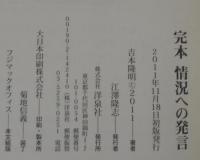 完本 情況への発言
2011年11月18日初版発行
吉本隆明©2011──著者
江澤隆志──発行者
株式会社洋泉社──発行所
東京都千代田区神田錦町
101-0054
郵便振替
00190-2-142410(株)洋泉社
大日本印刷株式会社──印刷・製本所
菊地信義──装丁
フジマックオフィス──本文組版